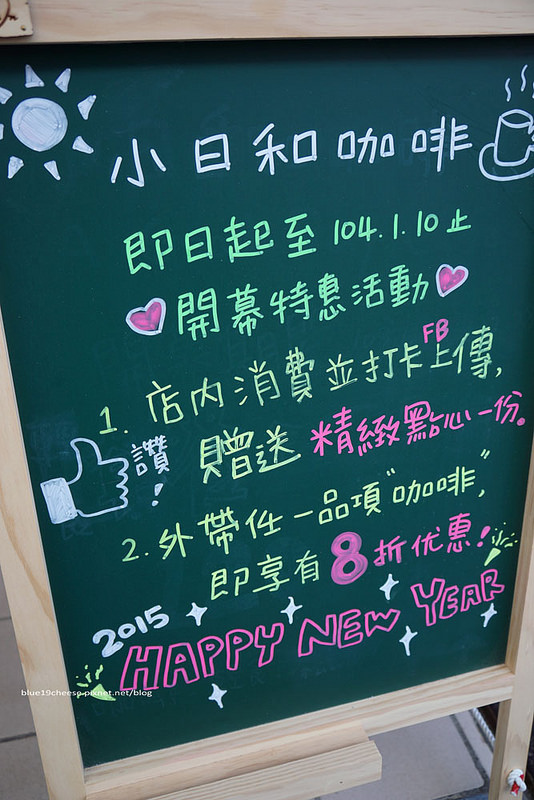 小日和咖啡
即日起至 104.1.10 止
開幕特惠活動
1. 店內消費並打卡FB上傳,
贈送 精緻點心一份。
讚!
2. 外帶任一品項"咖啡",
即享有 8 折优惠!
2015
HAPPY NEW YEAR
blue19cheese.pixnet.net/blog